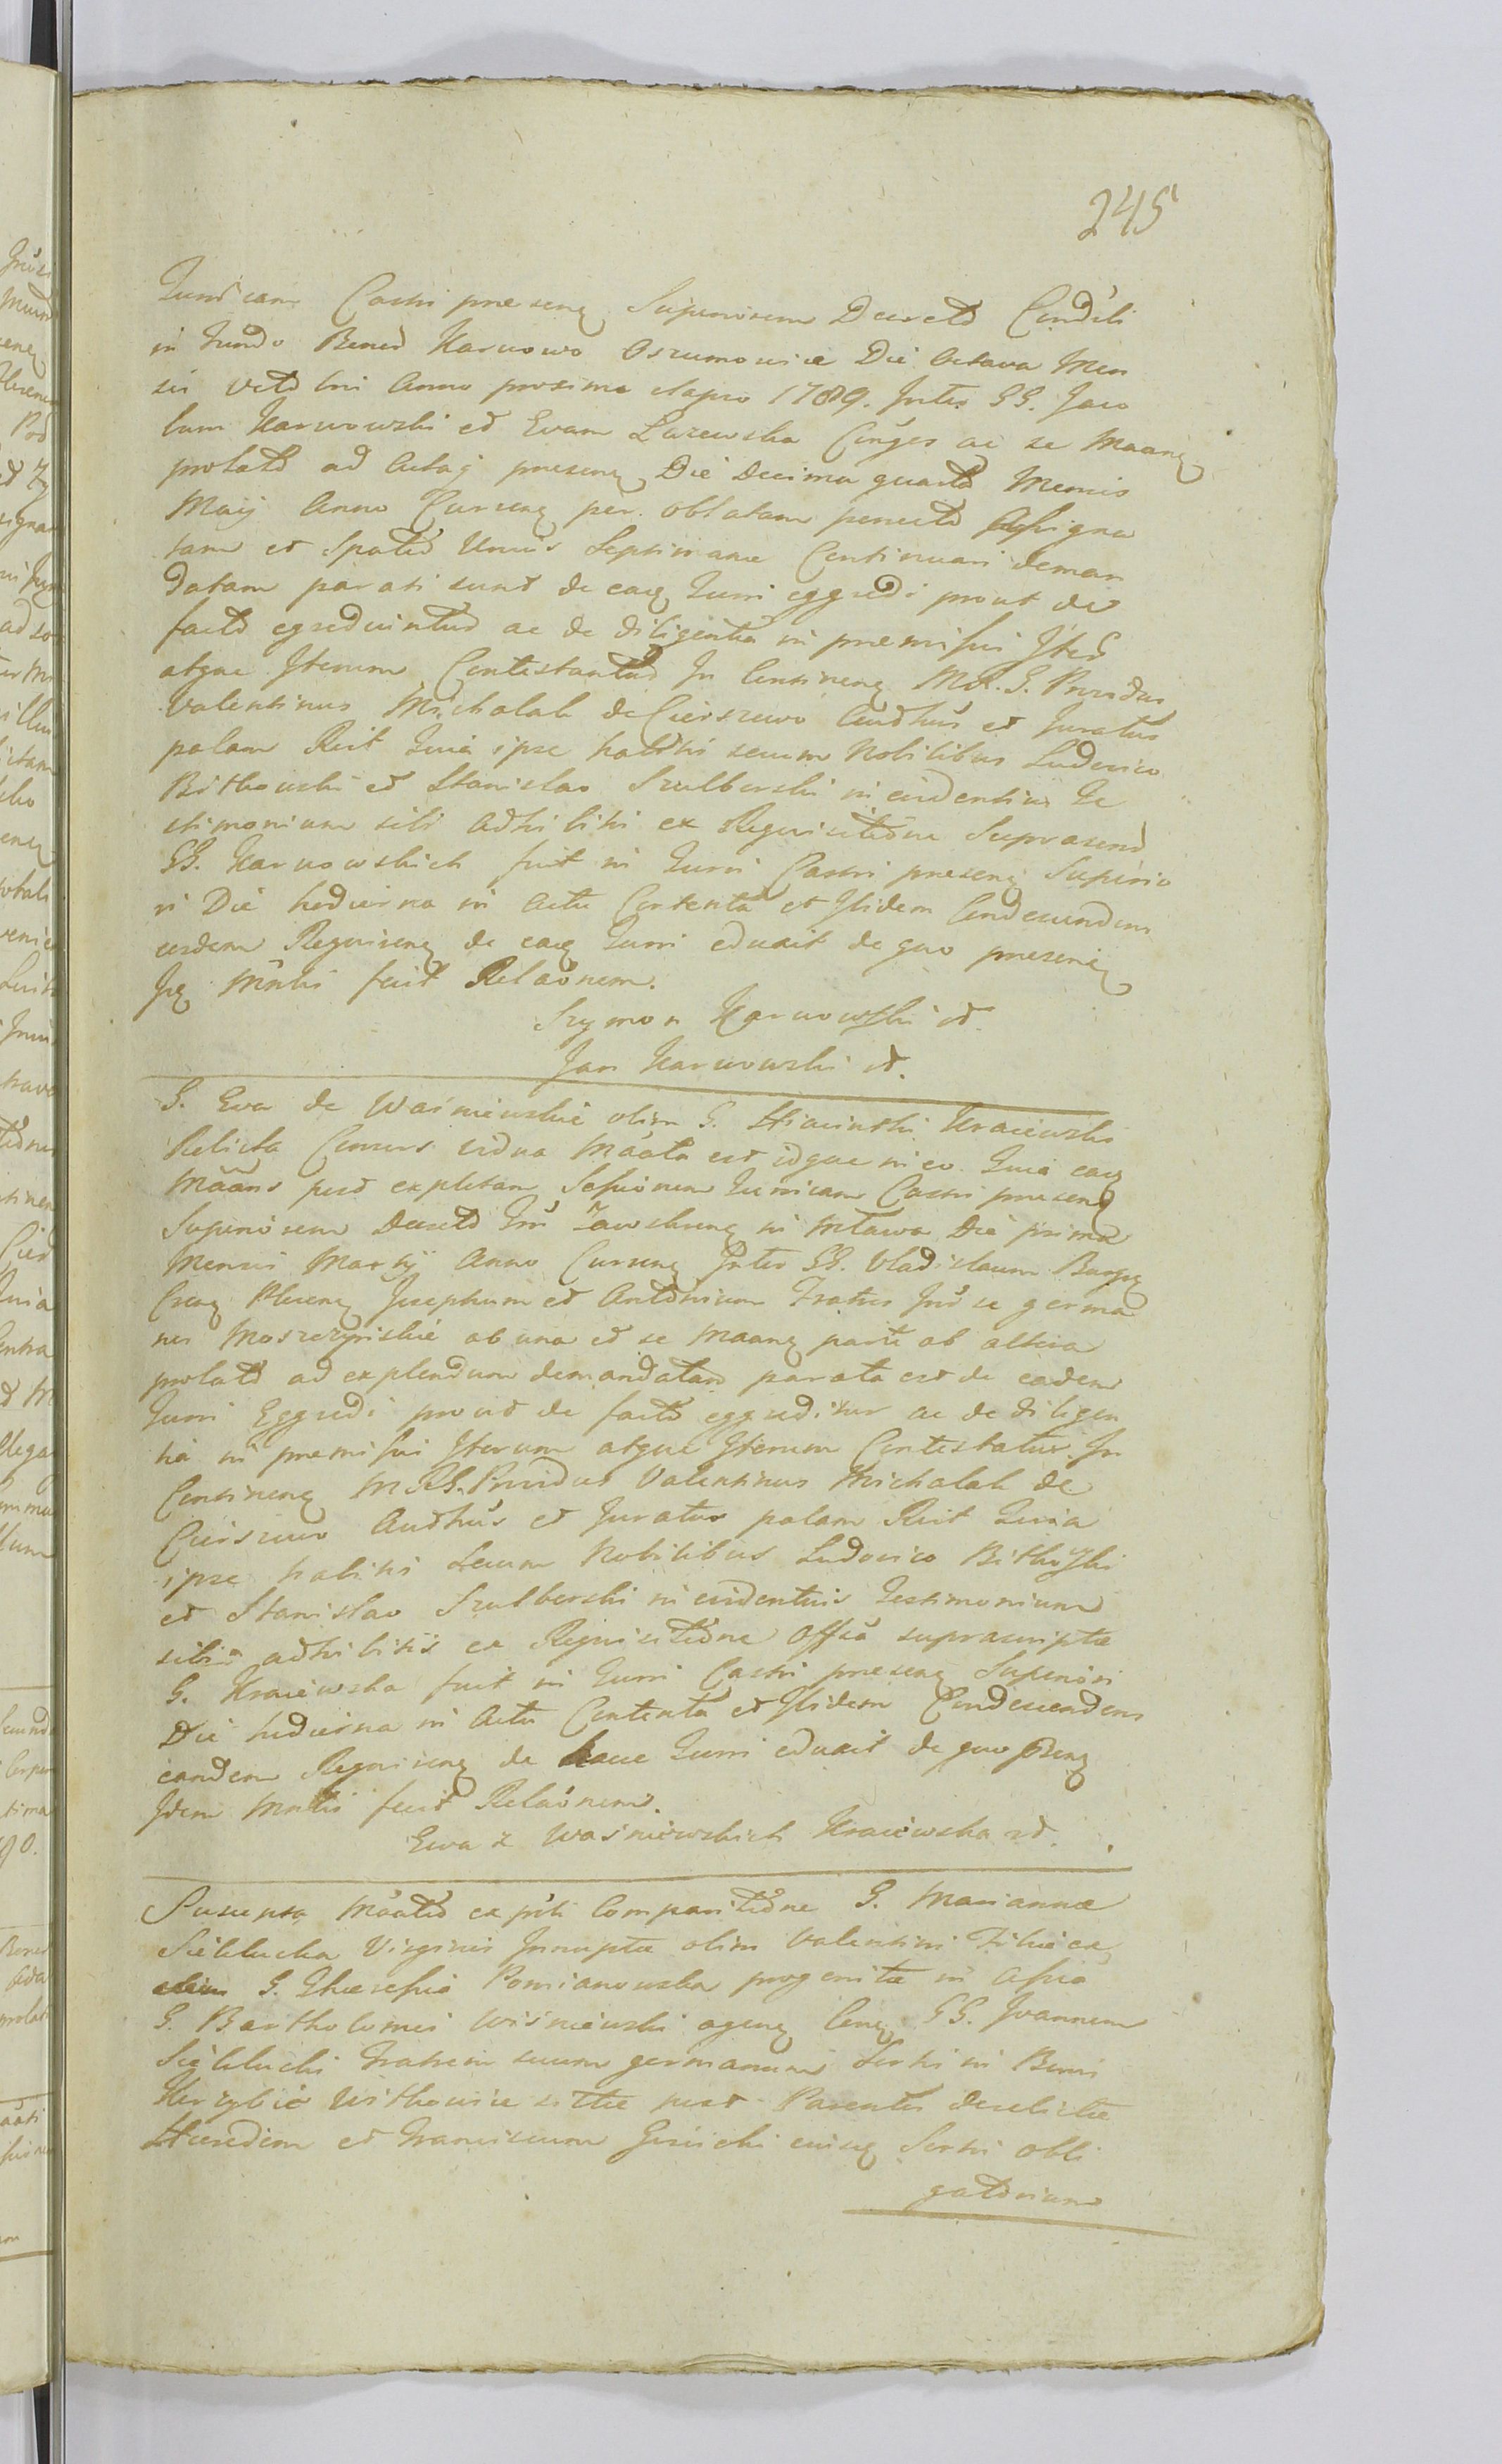 245
Turricam Castri presenq Superiorem Decreto Condicti
in fundo Bonor Karwowo Orszymowice Die Octava Men
sis Octobris Anno proxime elapso 1789. Inter GG. Jaco
bum Karwowski et Evam Lazewska Conges ac se Maanq
prolato ad Acta q presenq Die Decima quarta Mensis
Maij Anno Currenq per oblatam porrecto Assigna
tam et Spatio Unius Septimanae Continuari deman
datam parati sunt de eaq Turri eggredi prout de
facto egrediuntur ac de diligentia in premissis Iter
atque Iterum Contestantur In Continenq MRG. Providus
Valentinus Michalak de Cierszewo Authus et Juratus
palam Rcit Quia ipse habitis secum Nobilibus Ludovico
Bitkowski et Stanislao Szulborski in evidentius Te
stimonium sibi adhibitis ex Requisitione Suprascrip
GG. Karwowskich fuit in Turri Castri presenq Superio
ri Die hodierna in Actu Contenta et Ibidem Condescendens
eosdem Requirenq de eaq Turri eduxit de quo presenq
Iq Mntri fecit Relaonem.
Szymon Karwowski
Jan Karwowski
G. Eva de Waśniewskie olim G. Hiacinthi Kraiewski
Relicta Consors vidua Maata est idque in eo Quia eaq
Maans post expletam Sessionem Turricam Castri presenq
Superiorem Decreto Zawskrenq in Mława Die prima
Mensis Martij Anno Currenq Inter GG. Vladislaum Burgq
Crenq Plocenq Josephum et Antonium Fratres Int se germa
nos Moszczyńskie ab una et se Maanq parte ab altera
prolato ad explendum demandatam parata est de eadem
Turri Eggredi prout de facto eggreditur ac de diligen
tia in premissis Iterum atque Iterum Contestatur In
Continenq MRG. Providus Valentinus Michalak de
Cierszewo Authus et Juratus palam Rcit Quia
ipse habitis Secum Nobilibus Ludovico Bitkowski
et Stanislao Szulborski in evidentius Testimonium
sibi adhibitis ex Requisitione Offsa suprascriptae
G. Kraiewska fuit in Turri Castri presenq Superiori
Die hodierna in Actu Contenta et Ibidem Condescendens
eandem Requirenq de haec Turri eduxit de quo presenq
Idem Mntri fecit Relaonem.
Ewa z Waśniewskich Kraiewska
Suscepta Maatio ex psli Comparitione G. Mariannae
Siekłucka Virginis Innuptae olim Valentini Filiae ex
olim G. Theressia Pomianowska progenitae in Assia
G. Bartholomei Wiśniewski agenq Conq GG. Joannem
Siekłucki Fratrem suum germanum Sorti in Bonis
Kerzybie Witkowice sittae post Parentes derelictae
Haeredem et Franciscum Gosicki eiusq Sorti obli
gatorium